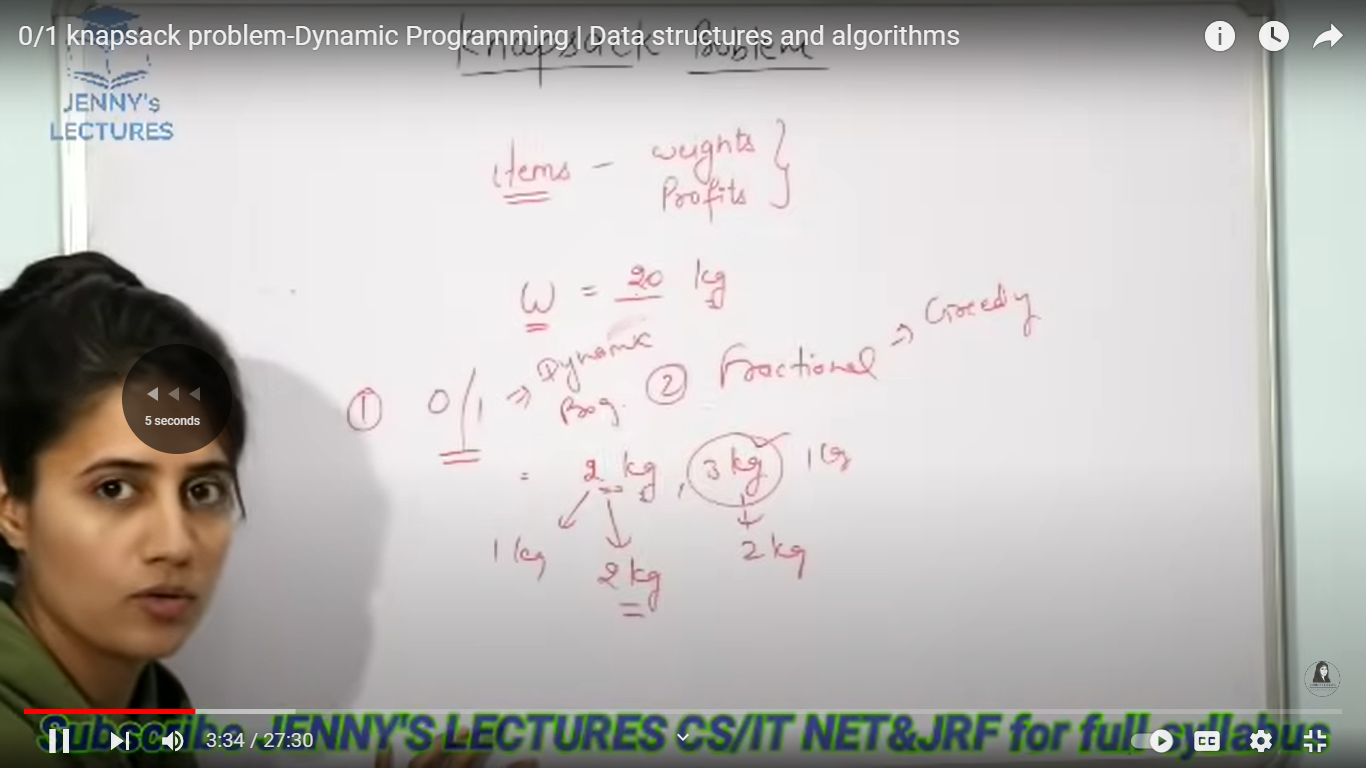 0/1 knapsack problem-Dynamic Programming | Data structures and algorithms
Knapsack Problem
JENNY's
LECTURES
items - weights }
Profits
W = 20 kg
① 0/1 ⇒ Dynamic Prog. ② Fractional ⇒ Greedy
= 2 kg, 3 kg 1 kg
1 kg 2 kg 2 kg
5 seconds
Subscribe JENNY'S LECTURES CS/IT NET&JRF for full syllabus
3:34 / 27:30
CC